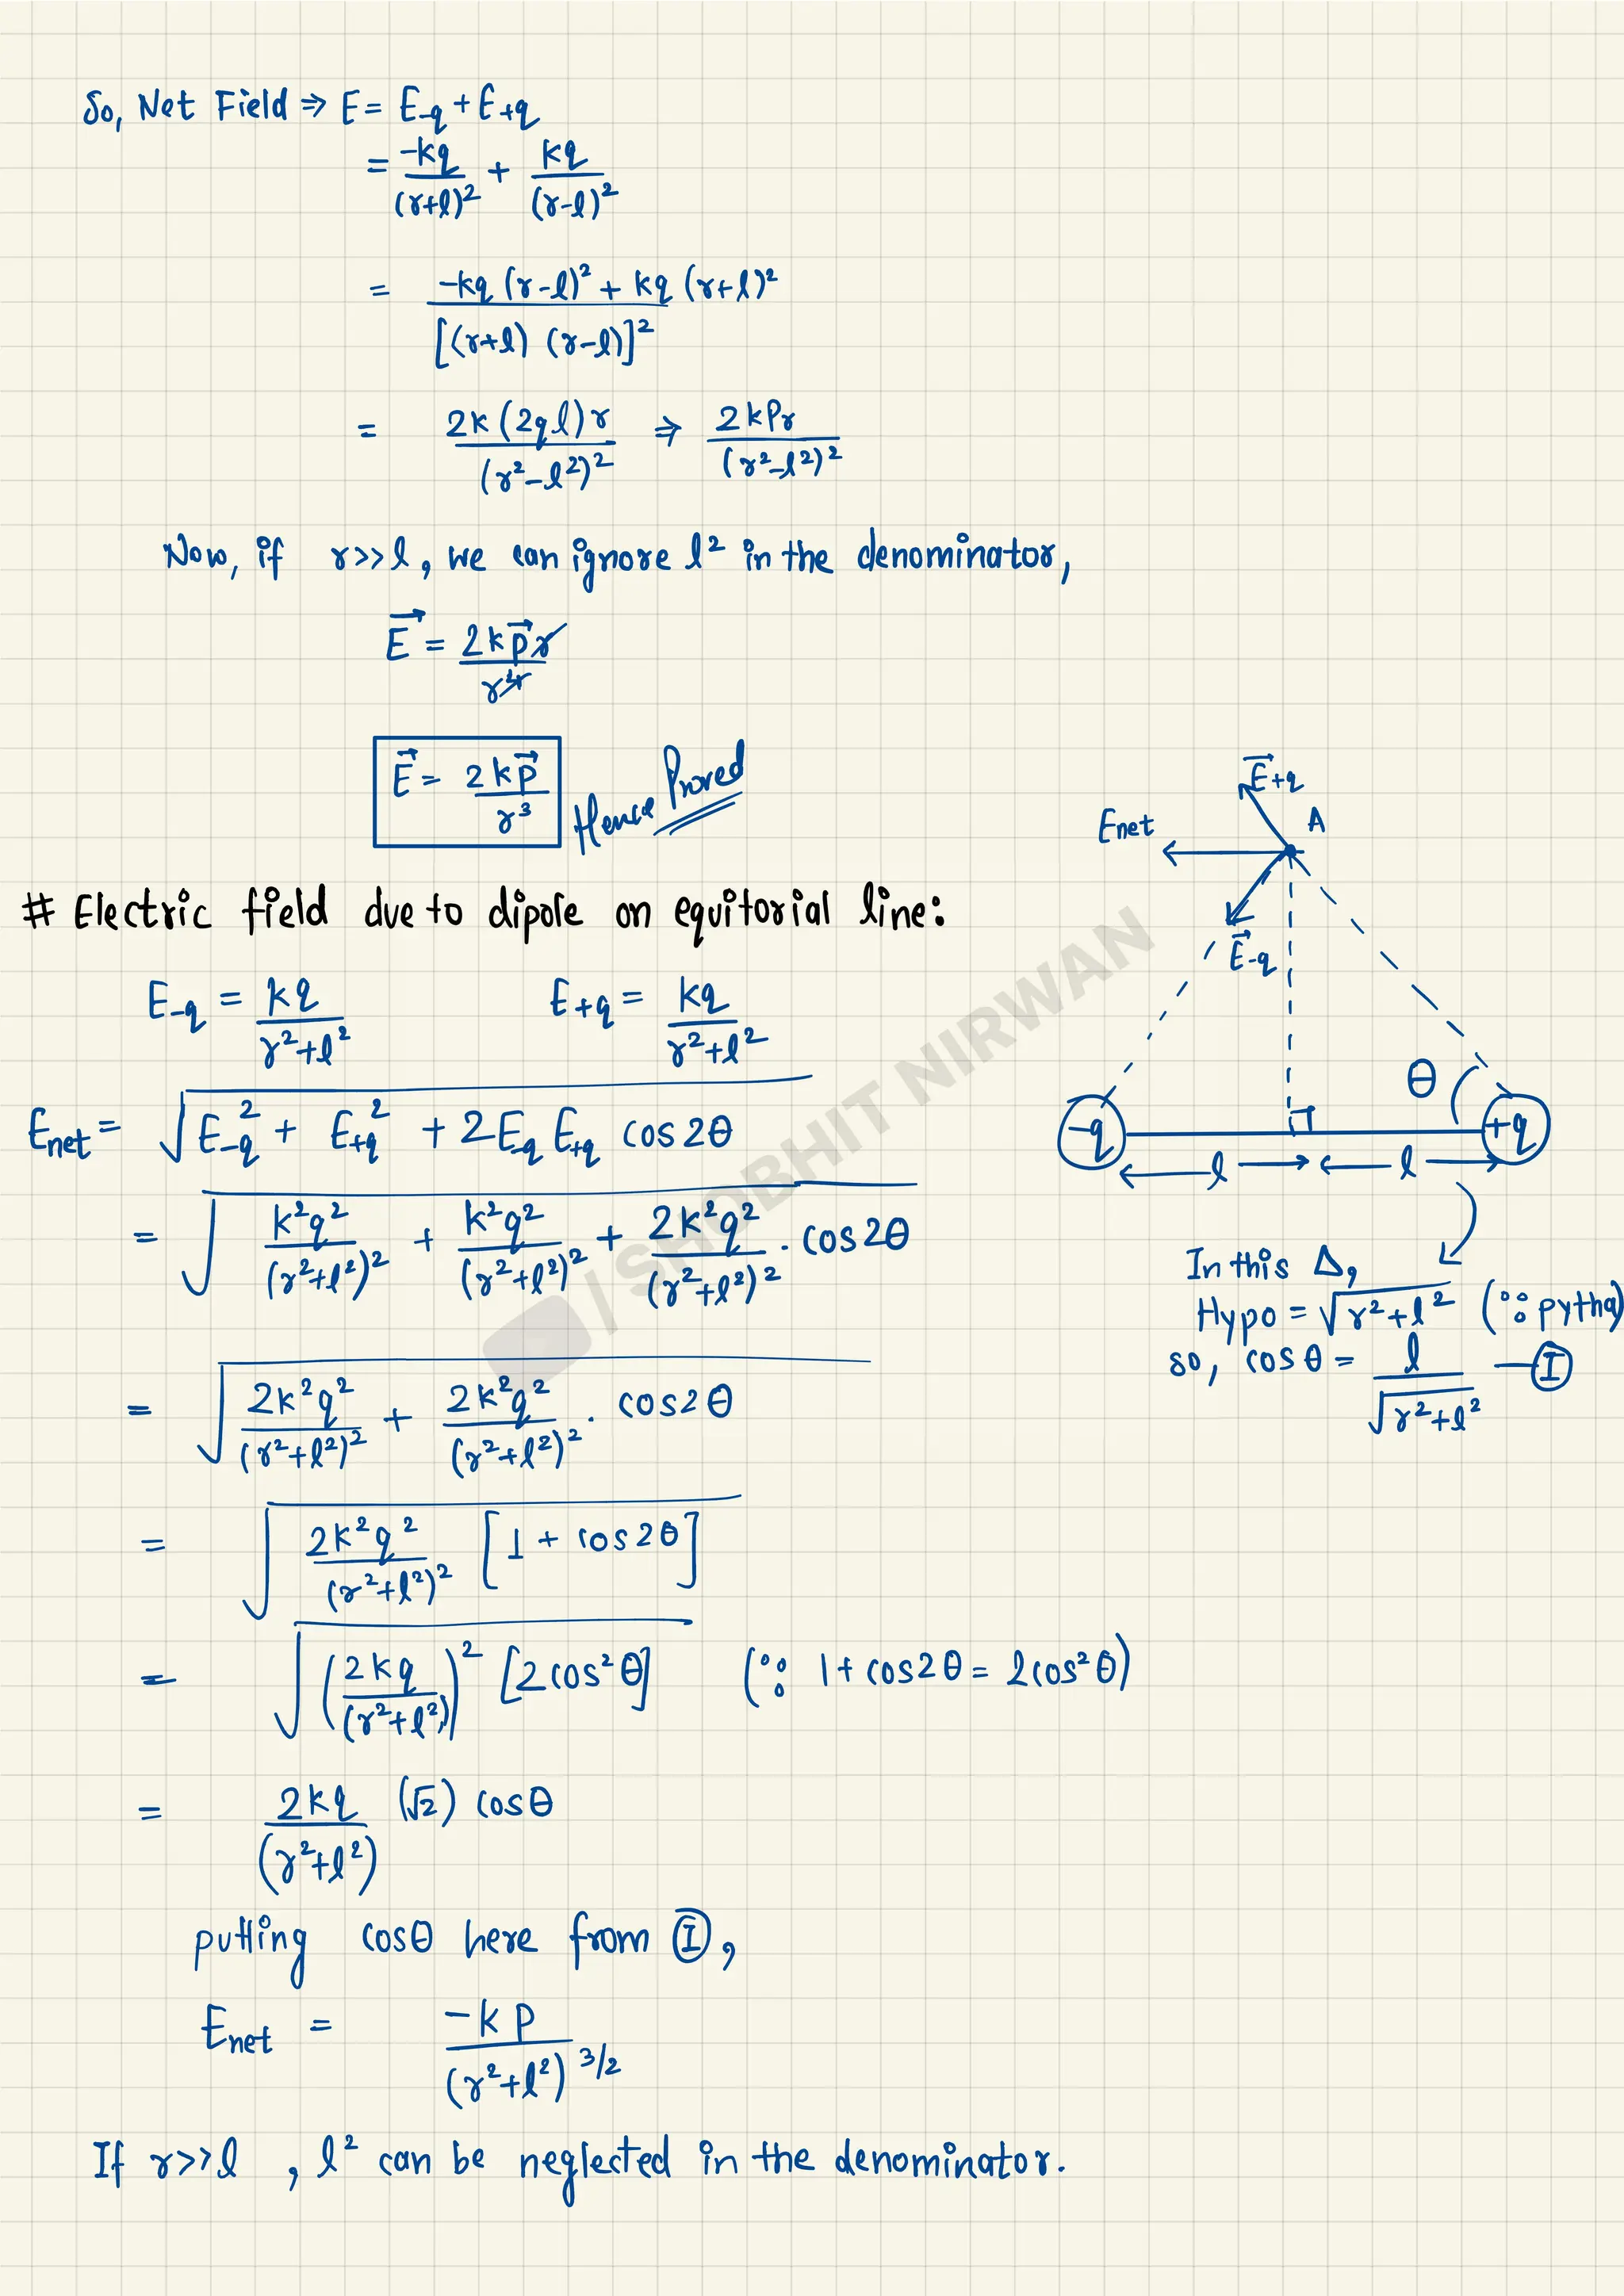 So, Net Field ⇒ E = E₋q + E₊q
= -kq/(r+l)² + kq/(r-l)²
= -kq (r-l)² + kq (r+l)² / [(r+l) (r-l)]²
= 2k(2ql)r/(r²-l²)² ⇒ 2kPr/(r²-l²)²
Now, if r>>l, we can ignore l² in the denominator,
E⃗ = 2kp⃗r/r⁴
E⃗ = 2kp⃗/r³ Hence Proved
# Electric field due to dipole on equitorial line:
E₋q = kq/(r²+l²) E₊q = kq/(r²+l²)
Enet = √(E₋q² + E₊q² + 2E₋q E₊q cos2θ)
= √(k²q²/(r²+l²)² + k²q²/(r²+l²)² + 2k²q²/(r²+l²)² . cos2θ)
= √(2k²q²/(r²+l²)² + 2k²q²/(r²+l²)² . cos2θ)
= √(2k²q²/(r²+l²)² [1 + cos2θ])
= √((2kq/(r²+l²))² [2cos²θ]) (∵ 1+cos2θ = 2cos²θ)
= 2kq/(r²+l²) (√2) cosθ
putting cosθ here from Ⓘ,
Enet = -kP/(r²+l²)^3/2
If r>>l, l² can be neglected in the denominator.
E⃗+q
Enet
A
E⃗-q
θ
-q
+q
l
l
In this Δ,
Hypo = √(r²+l²) (∵ pytha
so, cosθ = l/√(r²+l²) — Ⓘ
/ SHOBHIT NIRWAN